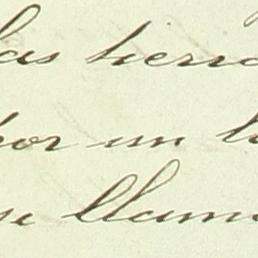 las tierra
por un l
se llama